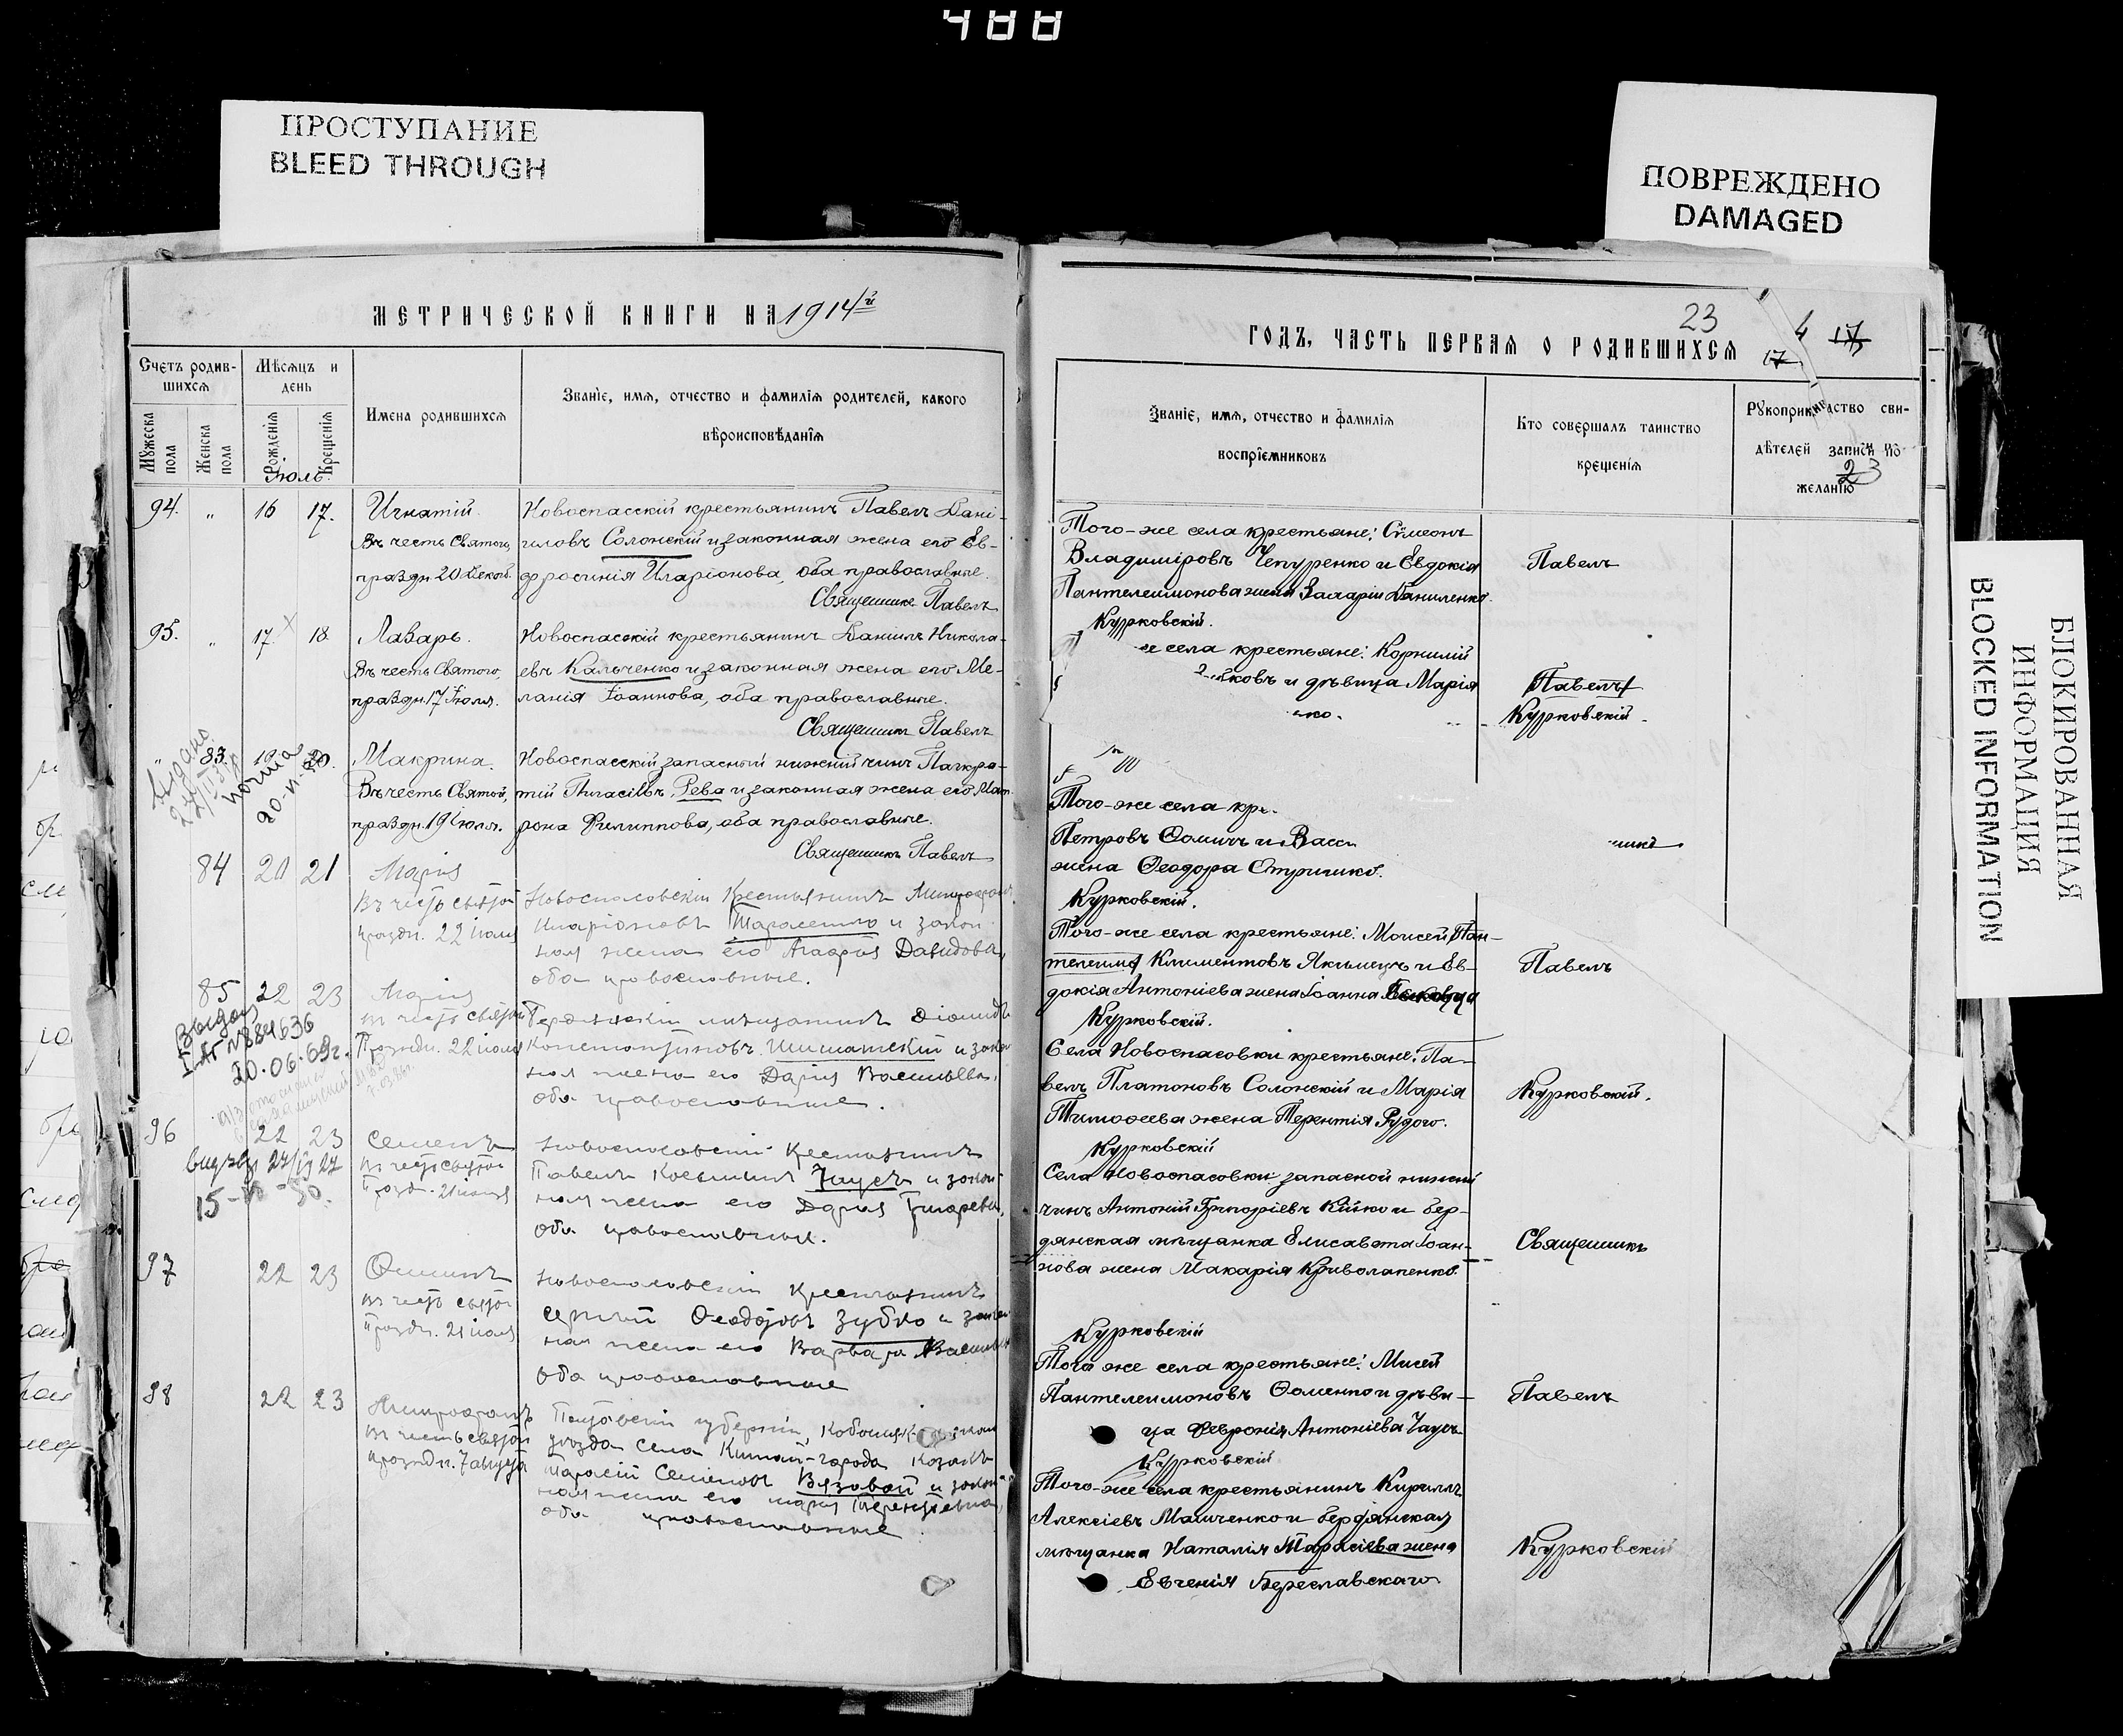 488
ПРОСТУПАНИЕ
BLEED THROUGH
ПОВРЕЖДЕНО
DAMAGED
БЛОКИРОВАННАЯ
ИНФОРМАЦИЯ
BLOCKED INFORMATION
МЕТРИЧЕСКОЙ КНИГИ НА 1914й
Счетъ родив-
шихся
Мѣсяцъ и
день
Мужеска
пола
Женска
пола
Рожденія
Крещенія
Имена родившихся
Званіе, имя, отчество и фамилія родителей, какого
вѣроисповѣданія
Іюль.
94. „ 16 17. Игнатій. Новоспасскій крестьянинъ Павелъ Дані-
Въ честь Святого, иловъ Солонскій и законная жена его Ев-
праздн. 20 Декаб. фросинія Иларіонова, оба православные.
Священникъ Павелъ
95. „ 17. 18. Лазарь. Новоспасскій крестьянинъ Даніилъ Никола-
Въ честь Святого, евъ Кальченко и законная жена его Ме-
праздн. 17 Іюля. ланія Іоаннова, оба православные.
Священникъ Павелъ
„ 83. 19. 20. Макрина. Новоспасскій запасный нижній чинъ Панкра-
Въ честь Святой, тій Рева и законная жена его Мат-
праздн. 19 Іюля. рона Филиппова, оба православные.
Священникъ Павелъ
84 20 21 Марія
Въ честь святой Новоспасовскій крестьянинъ Митрофанъ
праздн. 22 июля Иларіоновъ Тарасенко и закон
ная жена его Агафія Давидова,
оба православные.
85 22 23 Марія
въ честь святой Бердянскій мѣщанинъ Діомидъ
Праздн. 22 июля Константиновъ Шишатскій и закон
ная жена его Дарія Васильева,
оба православные.
Выдано
№884636
20.06.69г.
96 22 23 Семенъ Новоспасовскій крестьянинъ
въ честь святого Павелъ Косьминъ Чаусъ и закон
праздн. 21 июля ная жена его Дарія Григорьева,
оба православные.
97 22 23 Новоспасовскій крестьянинъ
въ честь святого Сергій Феодоровъ Зубко и закон
праздн. 21 июля ная жена его Варвара Васильева
оба православные
98 22 23 Митрофанъ Полтавской губерніи, Кобелякскаго
въ честь святого уѣзда села Китай-города козакъ
праздн. 7 августа Тарасій Семеновъ Вязовой и закон
ная жена его Марія Терентьевна,
оба православные
ГОДЪ, ЧАСТЬ ПЕРВАЯ О РОДИВШИХСЯ
23
4
17
17
Званіе, имя, отчество и фамилія
воспріемниковъ
Кто совершалъ таинство
крещенія
Рукоприкладство сви-
дѣтелей записи по
желанію
23
Того-же села крестьяне: Сѵмеонъ
Владиміровъ Чепуренко и Евдокія Павелъ
Пантелеимонова жена Захарія Даниленко.
Курковскій.
села крестьяне: Корнилій
ковъ и дѣвица Марія Павелъ
Курковскій
Того-же села кре
Петровъ Ѳоминъ и Васи
жена Ѳеодора Стрижико.
Курковскій.
Того-же села крестьяне: Моисей Пан-
телеимо Климентовъ Якимецъ и Ев- Павелъ
докія Антоніева жена Іоанна
Курковскій.
Села Новоспасовки крестьяне: Па-
велъ Платоновъ Солонскій и Марія Курковскій.
Тимоѳеева жена Терентія Рудого.
Курковскій
Села Новоспасовки запасной нижній
чинъ Антоній Григоріевъ Кійко и бер-
дянская мѣщанка Елисавета Іоан- Священникъ
нова жена Макарія Криволапенко.
Курковскій
Того же села крестьяне: Мисей
Пантелеимоновъ Ѳоменко и дѣви- Павелъ
ца Февронія Антоніева Чаусъ
Курковскій
Того-же села крестьянинъ Кириллъ
Алексіевъ Мащенко и бердянская
мѣщанка Наталія Тарасіева жена Курковскій
Евгенія Береславскаго